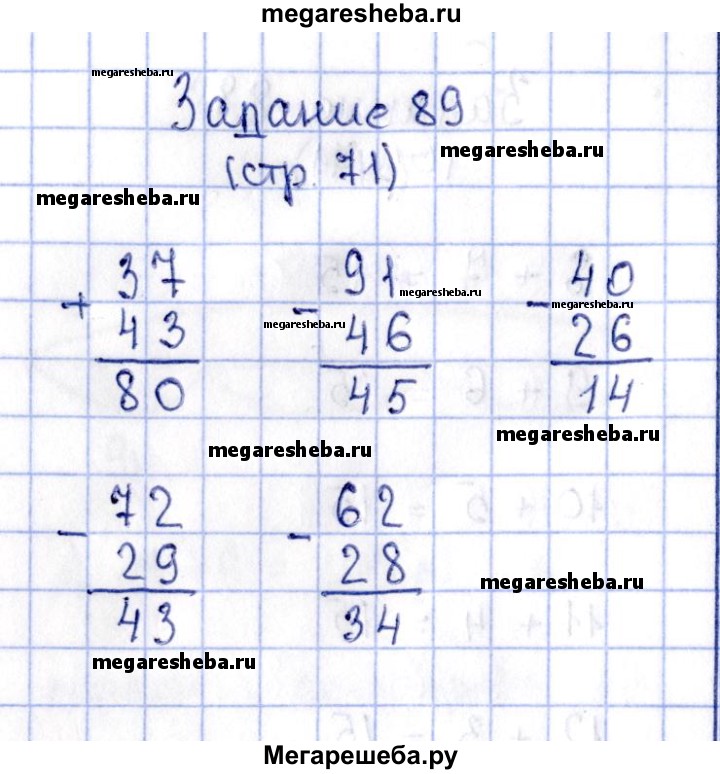 megaresheba.ru
megaresheba.ru
Задание 89
megaresheba.ru
(стр. 71)
megaresheba.ru
37 91 40
megaresheba.ru
+ - -
megaresheba.ru
megaresheba.ru
43 46 26
80 45 14
megaresheba.ru
megaresheba.ru
72 62
- -
29 28
megaresheba.ru
43 34
megaresheba.ru
Мегарешеба.ру